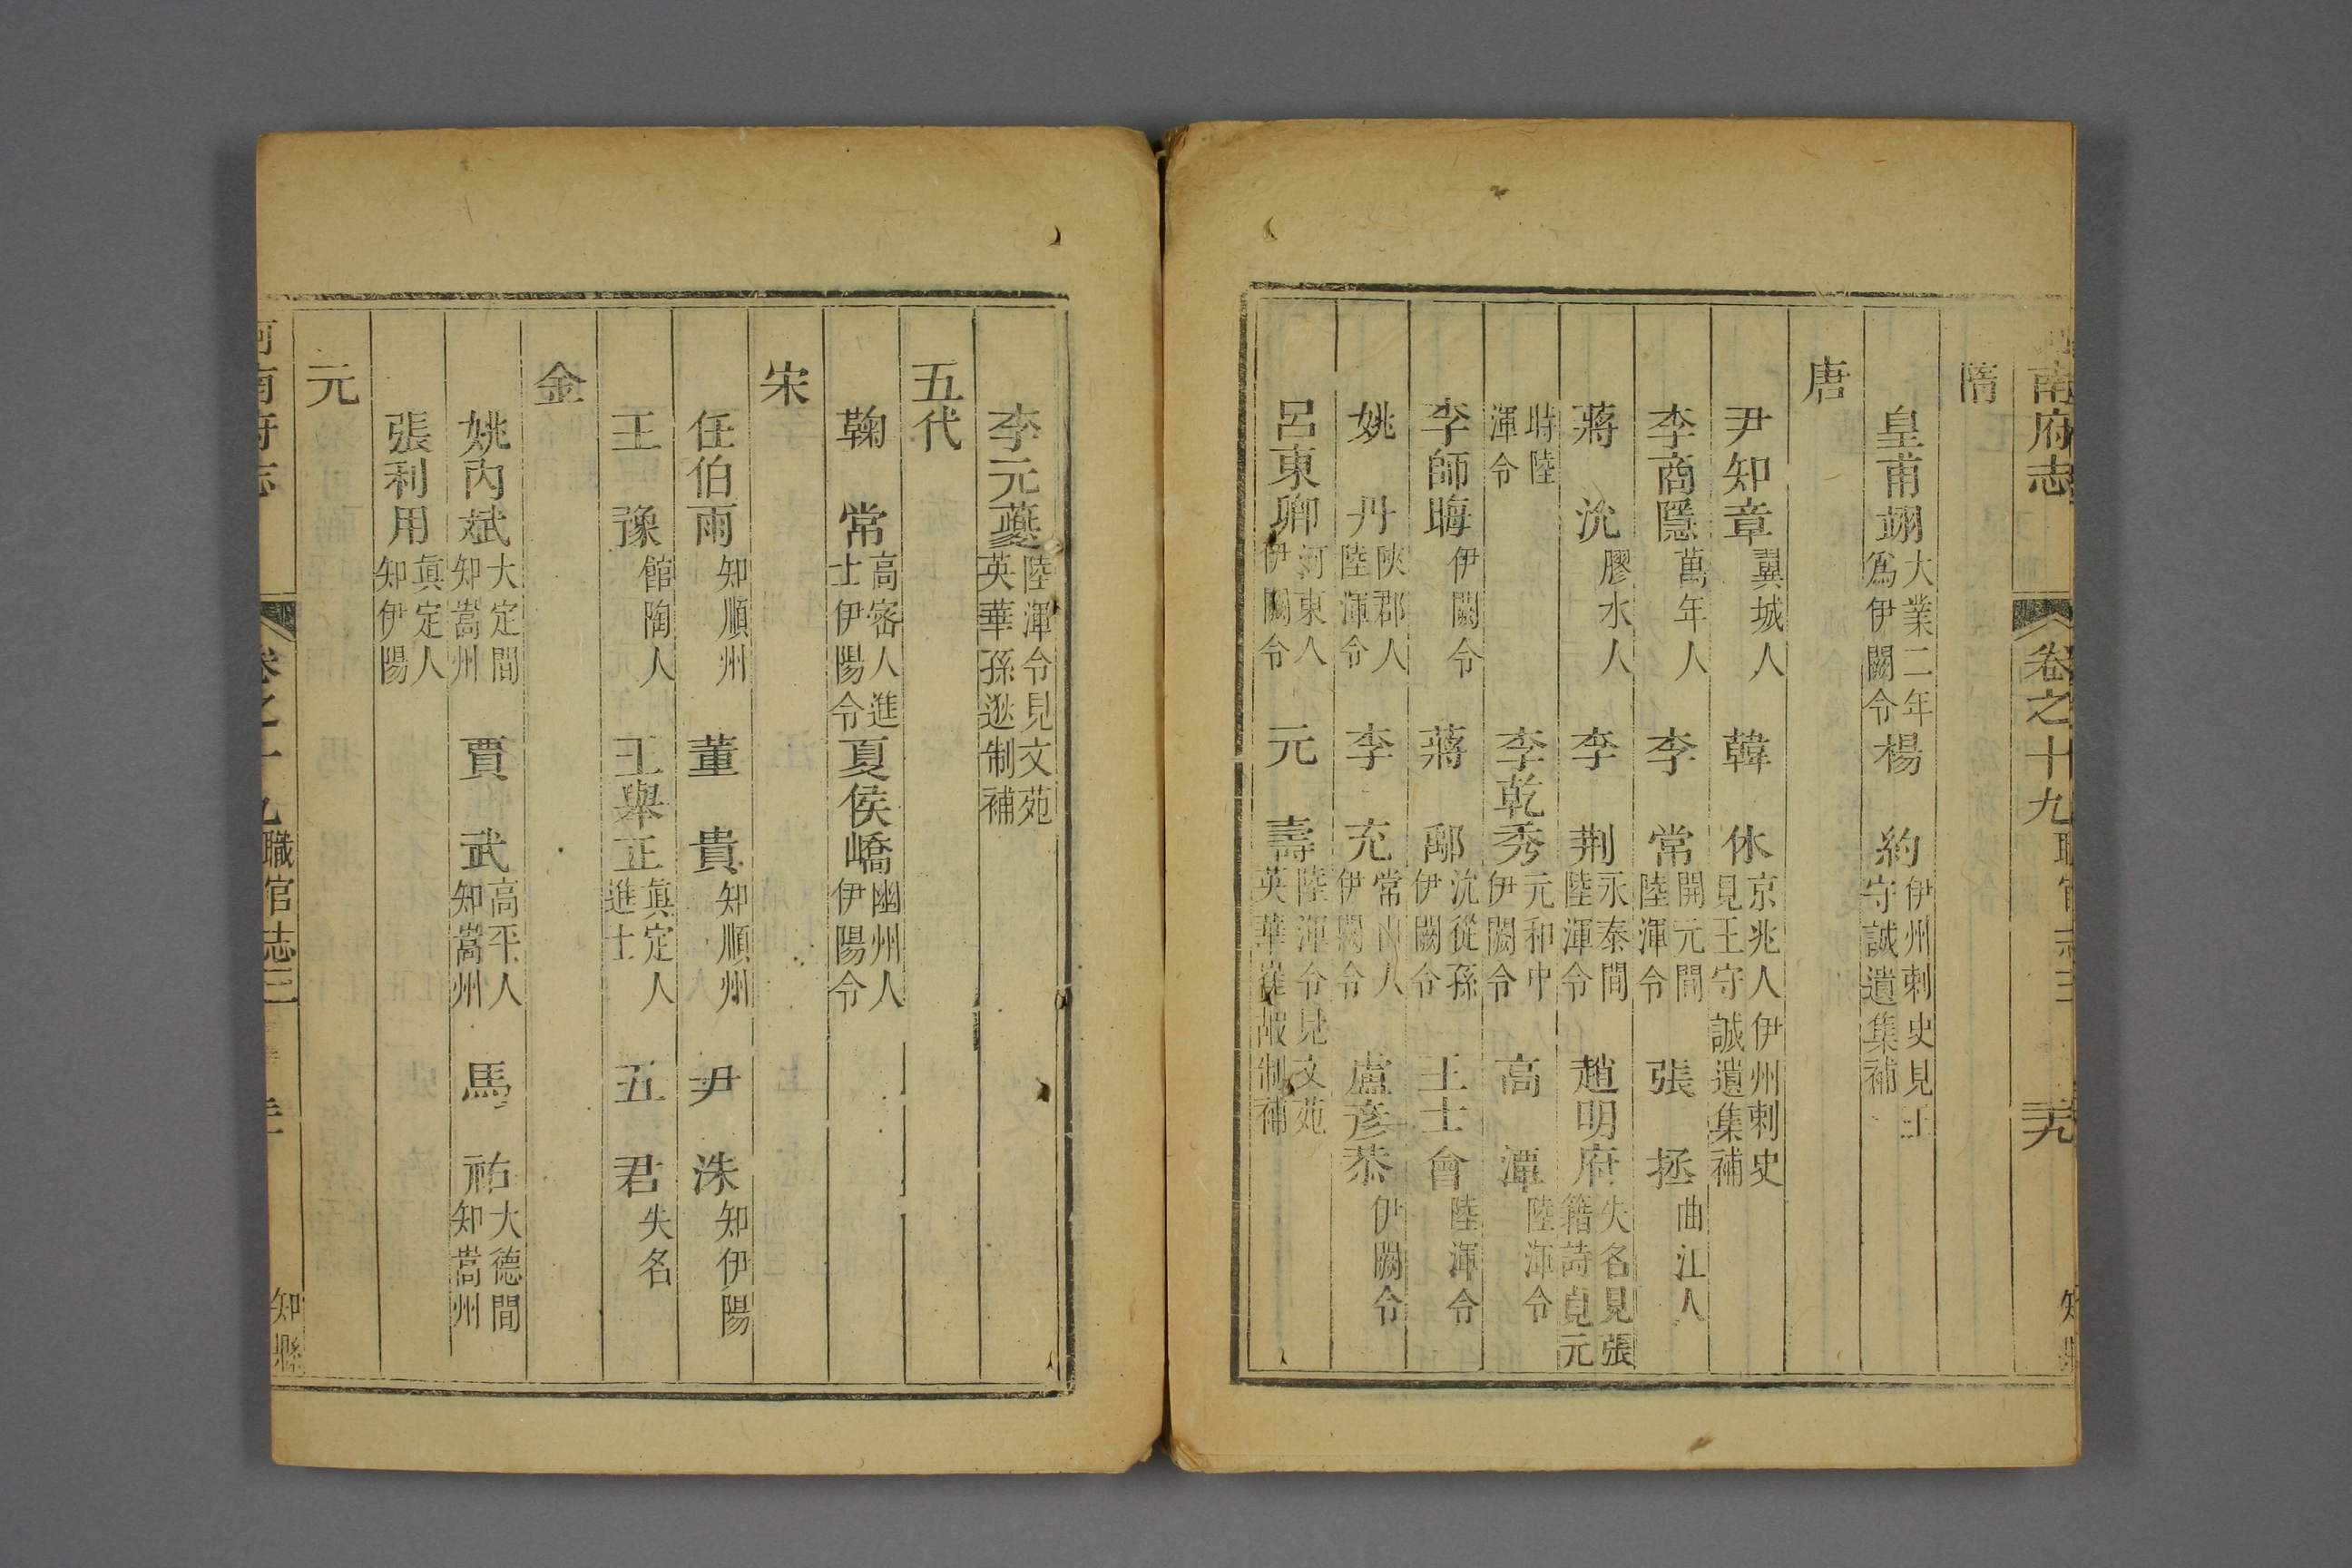 南府志 卷之十九 三 元
隋
皇甫翊 大業二年爲伊闕令 楊約 伊州刺史見王守誠遺集補
唐
尹知章 翼城人 韓休 京兆人伊州刺史見王守誠遺集補
李商隱 萬年人 李常 開元間陸渾令 張拯 曲江人
蔣沇 膠水人 李荆 永泰間陸渾令 趙明府 失名見張籍詩見元
時陸渾令 李乾秀 元和中伊闕令 高潭 陸渾令
李師晦 伊闕令 蔣鄅 沇從孫伊闕令 王士會 陸渾令
姚丹 陜郡人陸渾令 李充 常山人伊闕令 盧彦恭 伊闕令
呂東卿 河東人伊闕令 元壽 陸渾令見文苑英華崔嘏制補
李元夔 陸渾令見文苑英華孫逖制補
五代
鞠常 高密人進士伊陽令 夏侯嶠 幽州人伊陽令
宋
任伯雨 知順州 董貴 知順州 尹洙 知伊陽
王豫 館陶人 王舉正 眞定人進士 五君 失名
金
姚內斌 大定間知嵩州 賈武 高平人知嵩州 馬祐 大德間知嵩州
張利用 眞定人知伊陽
元
南府志 卷之十九 職官志三 知縣